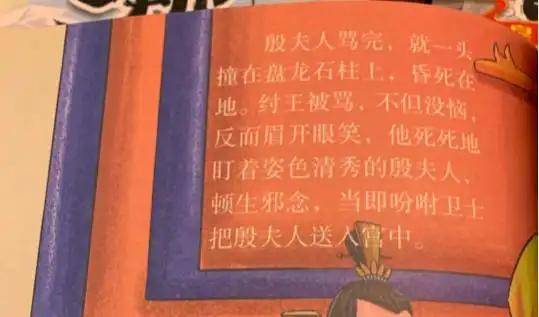 殷夫人骂完，就一头
撞在盘龙石柱上，昏死在
地。纣王被骂，不但没恼，
反而眉开眼笑，他死死地
盯着姿色清秀的殷夫人，
顿生邪念，当即吩咐卫士
把殷夫人送入宫中。